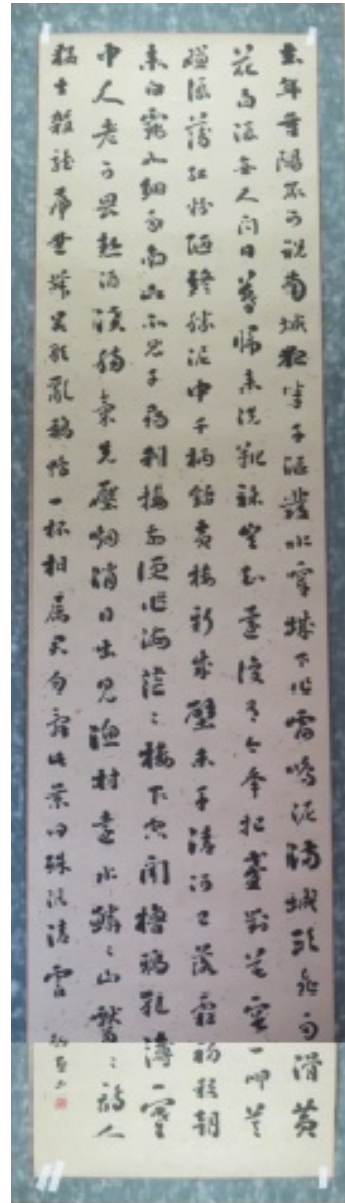 去年重陽不可說南城夜半千漚發水穿城下作雷鳴泥滿城頭飛雨滑黃
花白酒無人問日暮歸來洗靴襪豈知還復有今年把盞對花容一呷莫
嫌酒薄紅粉陋終勝泥中千柄鍤黃樓新成壁未乾清河已落霜初殺朝
來白霧如細雨南山不見千尋剎樓前便作海茫〻樓下空聞櫓鴉軋薄寒
中人老可畏熱酒澆腸氣先壓煙消日出見漁村遠水鱗〻山齾〻詩人
猛士雜龍虎楚舞吳歌亂鵝鴨一杯相屬君勿辭此景何殊泛清霅